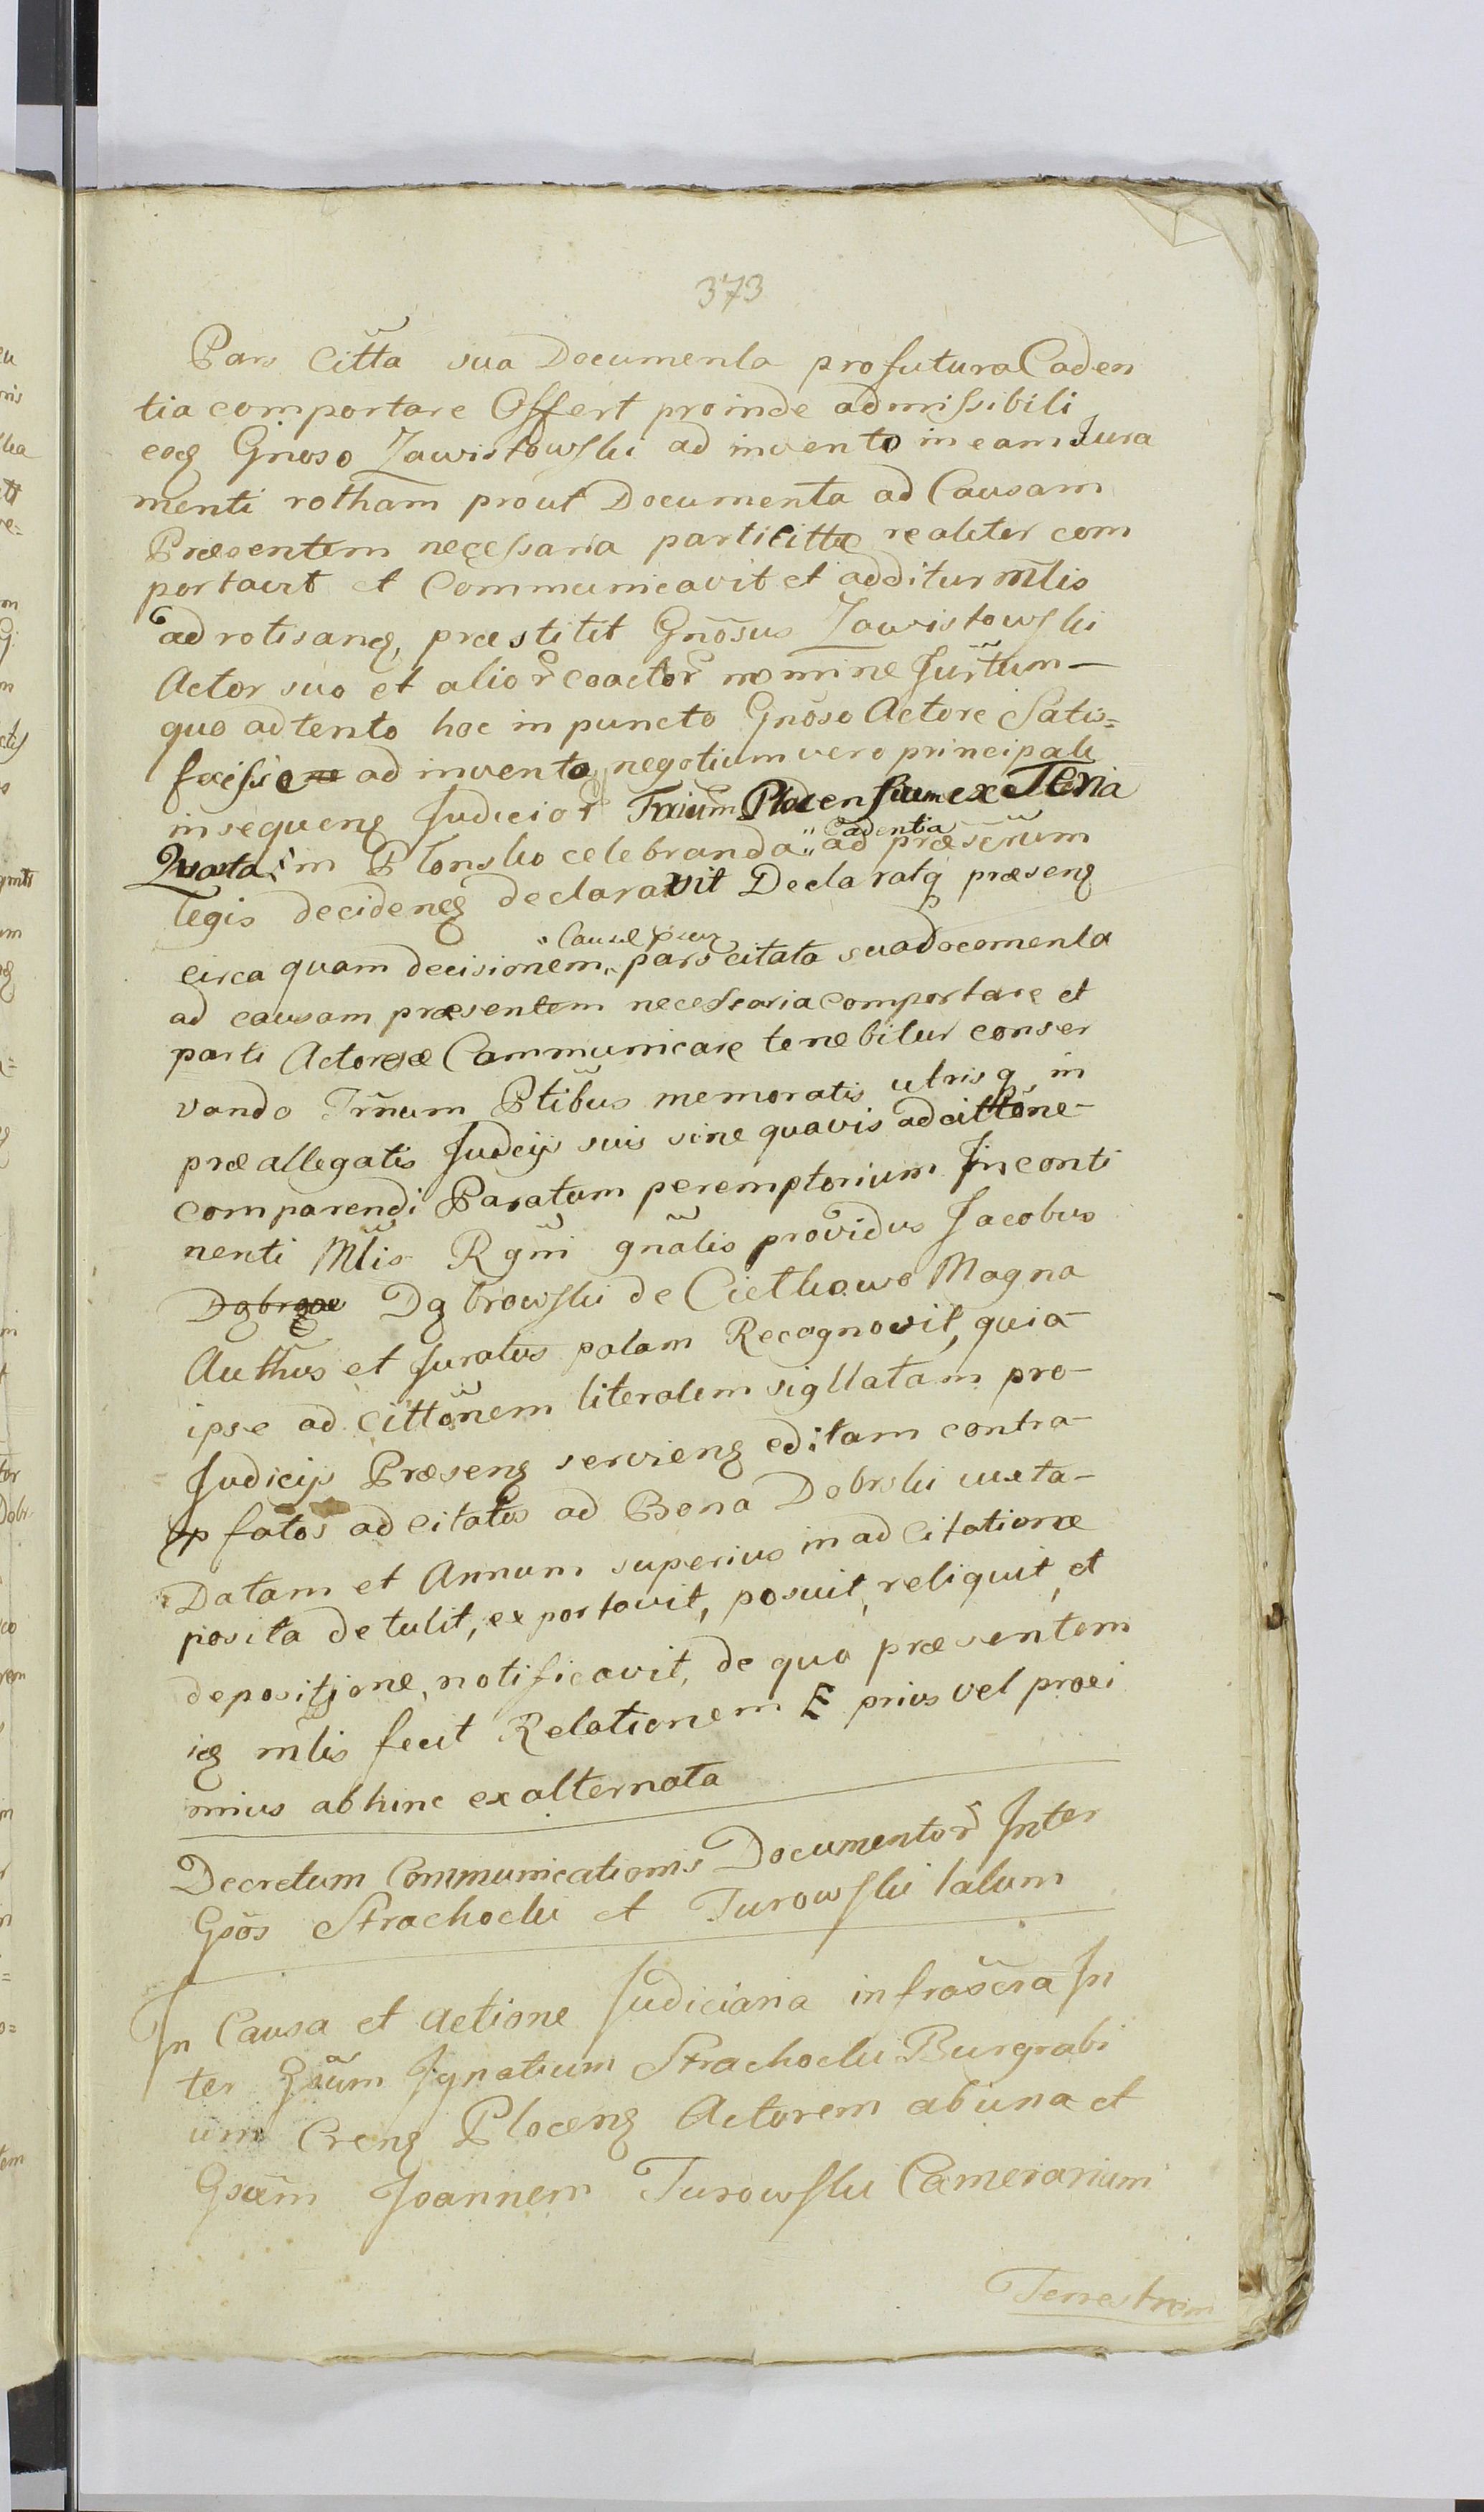 373
Pars Citta sua Documenta pro futura Caden
tia comportare Offert proinde admissibili
eoq Gnoso Zawistowski ad invento in eam Jura
menti rotham prout Documenta ad Causam
Præsentem necessaria parti cittæ realiter com
portavit et Communicavit et additur mlis
ad rotisanq, præstitit Gnosus Zawistowski
Actor suo et alior coactor nomine Jurtum—
quo adtento hoc in puncto Gnoso Actore Satis=
fecisse ad invento, negotium vero principale
in sequenq Judicior Trium Plocensium ex Teria
Quarta in Plonsko celebranda " Cadentia ad præscrum
legis decidenq declaravit Declaratq præsenq
circa quam decisionem, Causæ pars citata sua docomenta
ad causam præsentem necessaria comportare et
parti Actoreæ Communicare tenebitur conser
vando Trnum Ptibus memoratis utrisq in
præ allegatis Judicijs suis sine quavis adcittone—
comparendi Paratum peremptorium Inconti
nenti Mlis Rgni gnalis providus Jacobus
Dąbrowski de Ciethowo Magna
Autthus et Juratus palam Recognovit, quia—
ipse ad cittonem literalem sigllatam pro—
Judicijs Præsenq servienq editam contra—
p fatos ad citatos ad Bona Dobrski iuxta—
Datam et Annum superius in ad citatione
posita detulit, exportavit, posuit, reliquit, et
depositione, notificavit, de quo præsentem
iq mlis fecit Relationem E prius vel proxi
mius abhinc exalternata
Decretum Communicationis Documentor Inter
Gsos Strachocki et Turowski latum
In Causa et Actione Judiciaria infrascra In
ter Gsum Ignatium Strachocki Burgrabi
um Crenq Plocenq Actorem ab una et
Gsum Joannem Turowski Camerarium
Terrestrem